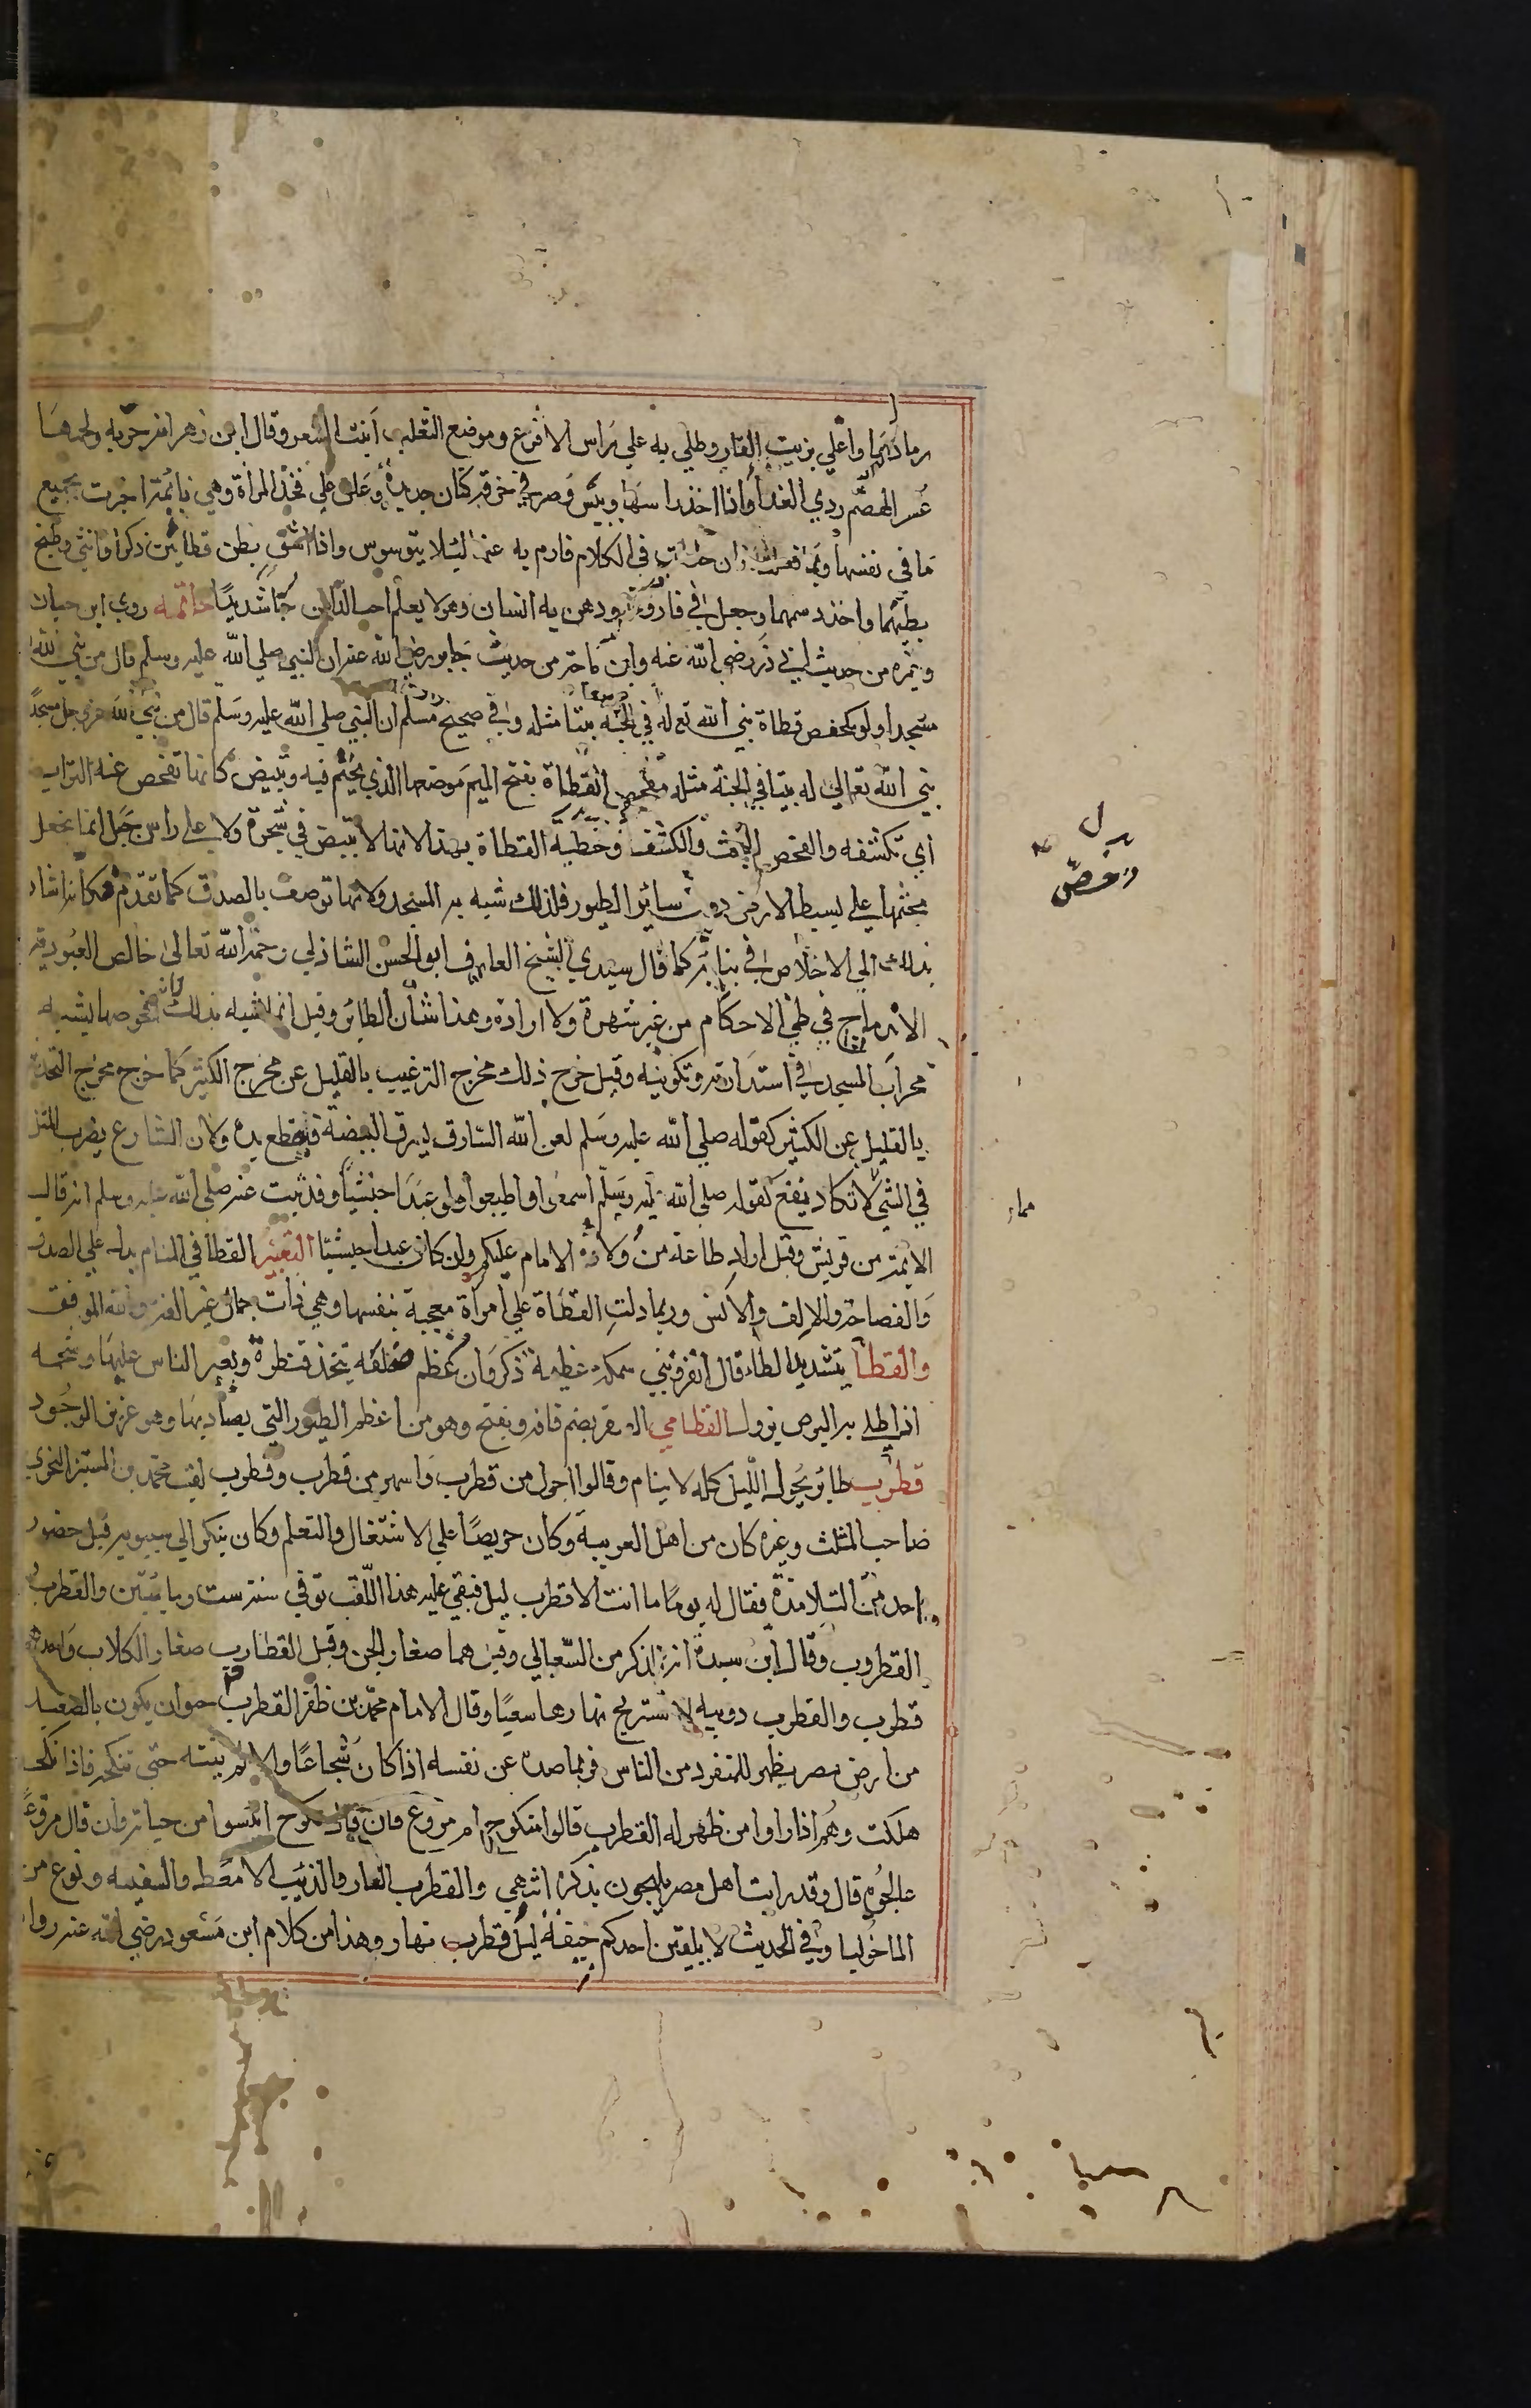 رمادهما واغلي بزيت الغار وطلي به علي راس الاقرع وموضع الثعلب انبت الشعر وقال ابن زهر انه جربه ولحمها
عسر الهضم ردي الغذا واذا اخذ راسها ويبس وصر في خرقة كتان جديدة وعلق علي فخذ المراة وهي نايمة اخبرت بجميع
ما في نفسها في الكلام فارم به عنها ليلا يتوسوس واذا شق بطن قطاتين ذكرا وانثي وطبخ
بطنهما واخذ دسمهما وجعل في قارورة ودهن به انسان وهو لا يعلم احب الداهن حبا شديدا خاتمه روي ابن حبان
وغيره من حديث ابي ذر رضي الله عنه وابن ماجة من حديث جابر رضي الله عنه ان النبي صلي الله عليه وسلم قال من بني لله
مسجدا ولو كمفحص قطاة بني الله تع له في الجنة بيتا مثله وفي صحيح مسلم ان النبي صلي الله عليه وسلم قال من بني لله عز وجل مسجدا
بني الله تعالي له بيتا في الجنة مثله مفحص القطاة بفتح الميم موضعها الذي تجثم فيه وتبيض كانها تفحص عنه التراب
اي تكشفه والفحص البحث والكشف وخصت القطاة بهذا لانها لا تبيض في شجرة ولا علي راس جبل انما تجعل
مجثمها علي بسيط الارض دون سائر الطيور فلذلك شبه به المسجد ولانها توصف بالصدق كما تقدم فكانه اشار
بذلك الي الاخلاص في بنائه كما قال سيدي الشيخ العارف ابو الحسن الشاذلي رحمه الله تعالي خالص العبودية
الاندماج في طي الاحكام من غير شهوة ولا ارادة وهذا شان الطائر وقيل انما شبه بذلك لان افحوصها يشبه
محراب المسجد في استدارته وتكوينه وقيل خرج ذلك مخرج الترغيب بالقليل عن مخرج الكثير كما خرج مخرج التحذير
بالقليل عن الكثير كقوله صلي الله عليه وسلم لعن الله السارق يسرق البيضة فتقطع يده ولان الشارع يضرب المثل
في الشي لا تكاد ينفع كقوله صلي الله عليه وسلم اسمعوا واطيعوا ولو عبدا حبشيا وقد ثبت عنه صلي الله عليه وسلم انه قال
الايمة من قريش وقيل اراد طاعة من ولاه الامام عليكم وان كان عبدا حبشيا التعبير القطا في المنام يدل علي الصدق
والفصاحة والالف والانس وربما دلت القطاة علي امراة معجبة بنفسها وهي ذات جمال غير الف والله الموفق
والقطا بتشديد الطاء قال القزويني سمكة عظيمة ذكر وان عظم ضلعه يتخذ قنطرة ويعبر الناس عليها وشحمه
اذا طلي به البرص يزول القطامي الصقر بضم قافه ويفتح وهو من اعظم الطيور التي يصاد بها وهو عزيز الوجود
قطرب طائر يجول الليل كله لا ينام وقالوا اجول من قطرب واسهر من قطرب وقطرب لقب محمد بن المستنير النحوي
صاحب المثلث وغيره كان من اهل العربية وكان حريصا علي الاشتغال والتعلم وكان يبكر الي سيبويه قبل حضور
احد من التلامذة فقال له يوما ما انت الا قطرب ليل فبقي عليه هذا اللقب توفي سنة ست ومايتين والقطرب
القطروب وقال ابن سيدة انه الذكر من السعالي وقيل هما صغار الجن وقيل القطارب صغار الكلاب واحدها
قطرب والقطرب دويبه لا تستريح نهارها سعيا وقال الامام محمد بن ظفر القطرب حيوان يكون بالصعيد
من ارض مصر يظهر للمنفرد من الناس فربما صده عن نفسه اذا كان شجاعا والا لم ينته حتي ينكحه فاذا نكحه
هلكت وهم اذا راوا من ظهر له القطرب قالوا امنكوح ام مروع فان قال منكوح ايسوا من حياته وان قال مروع
عالجوه قال وقد رايت اهل مصر يلهجون بذكره انتهي والقطرب الفار والذئب الامعط والسفيه ونوع من
الماخوليا وفي الحديث لا يلقين احدكم جيفة ليل قطرب نهار وهذا من كلام ابن مسعود رضي الله عنه رواه